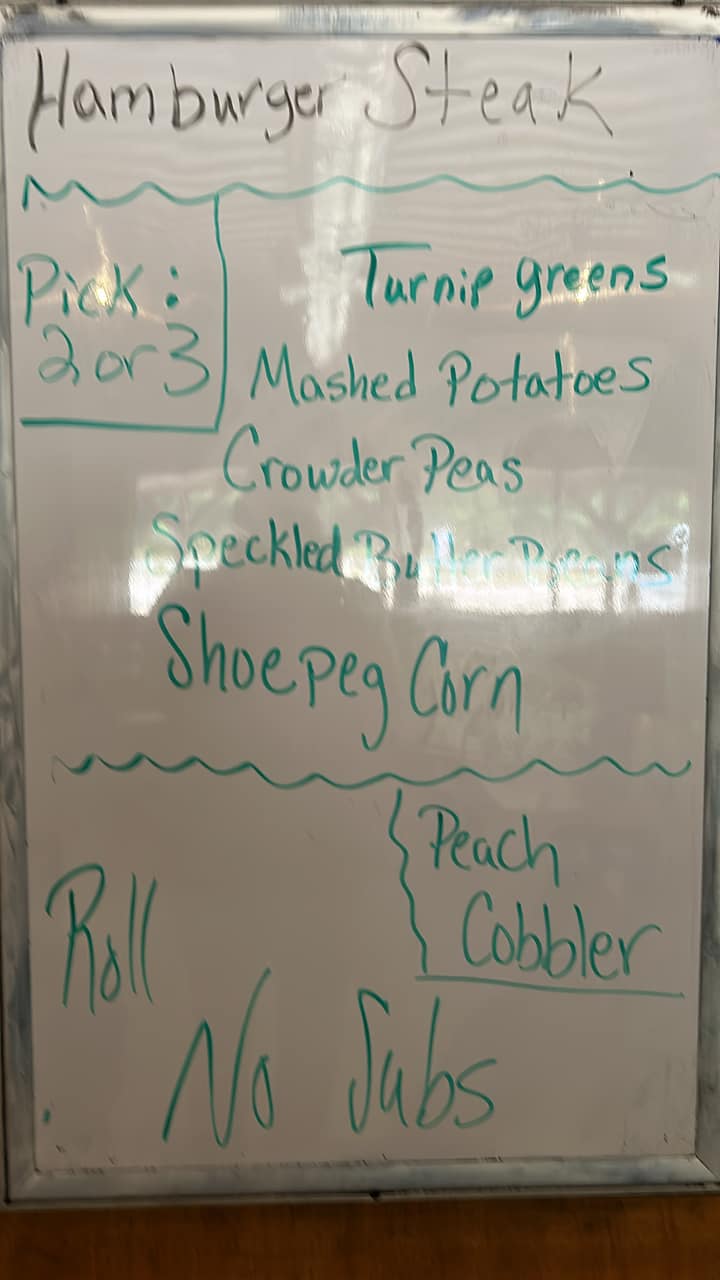 Hamburger Steak
Pick:
2 or 3
Turnip greens
Mashed Potatoes
Crowder Peas
Speckled Butter Beans
Shoepeg Corn
Roll
Peach
Cobbler
No Subs